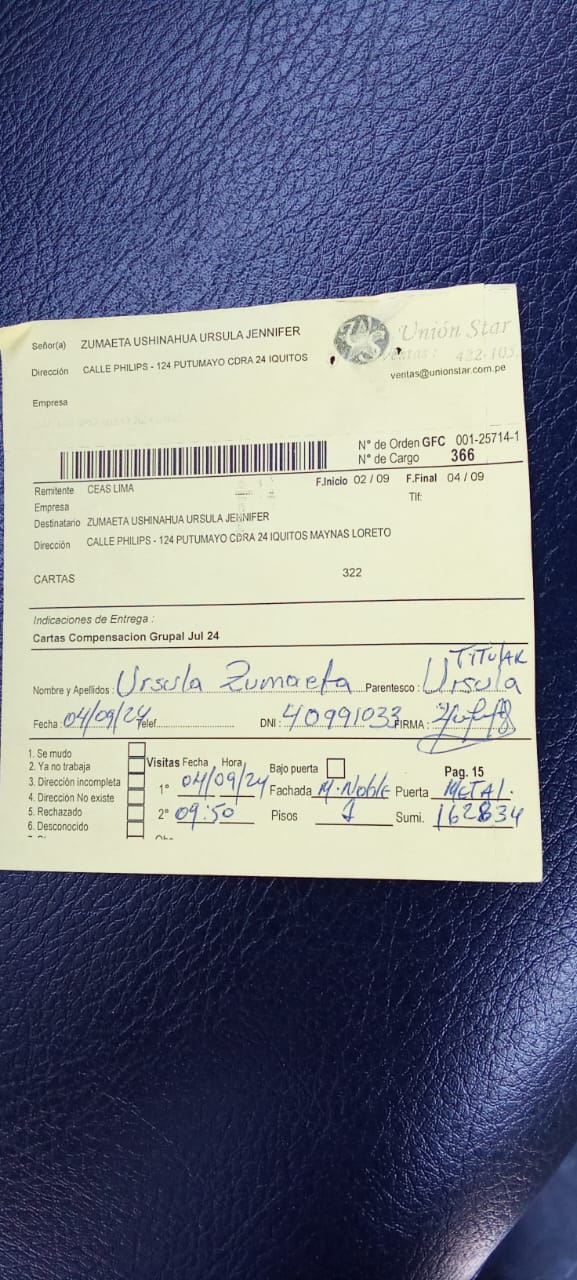 Señor(a) ZUMAETA USHINAHUA URSULA JENNIFER
Unión Star
Dirección CALLE PHILIPS - 124 PUTUMAYO CDRA 24 IQUITOS
ventas@unionstar.com.pe
Empresa
N° de Orden GFC 001-25714-1
N° de Cargo 366
Remitente CEAS LIMA
F.Inicio 02 / 09 F.Final 04 / 09
Empresa
Tlf:
Destinatario ZUMAETA USHINAHUA URSULA JENNIFER
Dirección CALLE PHILIPS - 124 PUTUMAYO CDRA 24 IQUITOS MAYNAS LORETO
CARTAS 322
Indicaciones de Entrega :
Cartas Compensacion Grupal Jul 24
TITULAR
Nombre y Apellidos : Ursula Zumaeta Parentesco : Ursula
Fecha : 04/09/24 Telef. DNI : 40991033 FIRMA :
1. Se mudo
2. Ya no trabaja
3. Dirección incompleta
4. Dirección No existe
5. Rechazado
6. Desconocido
Visitas Fecha Hora Bajo puerta Pag. 15
1° 04/09/24 Fachada M. Noble Puerta METAL.
2° 09:50 Pisos 1 Sumi. 162834